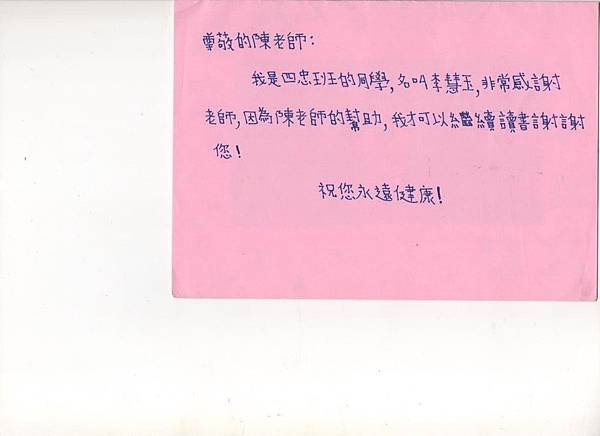 尊敬的陳老師:
我是四忠班的同學,名叫李慧玉,非常感謝
老師,因為陳老師的幫助,我才可以繼續讀書謝謝
您!
祝您永遠健康!